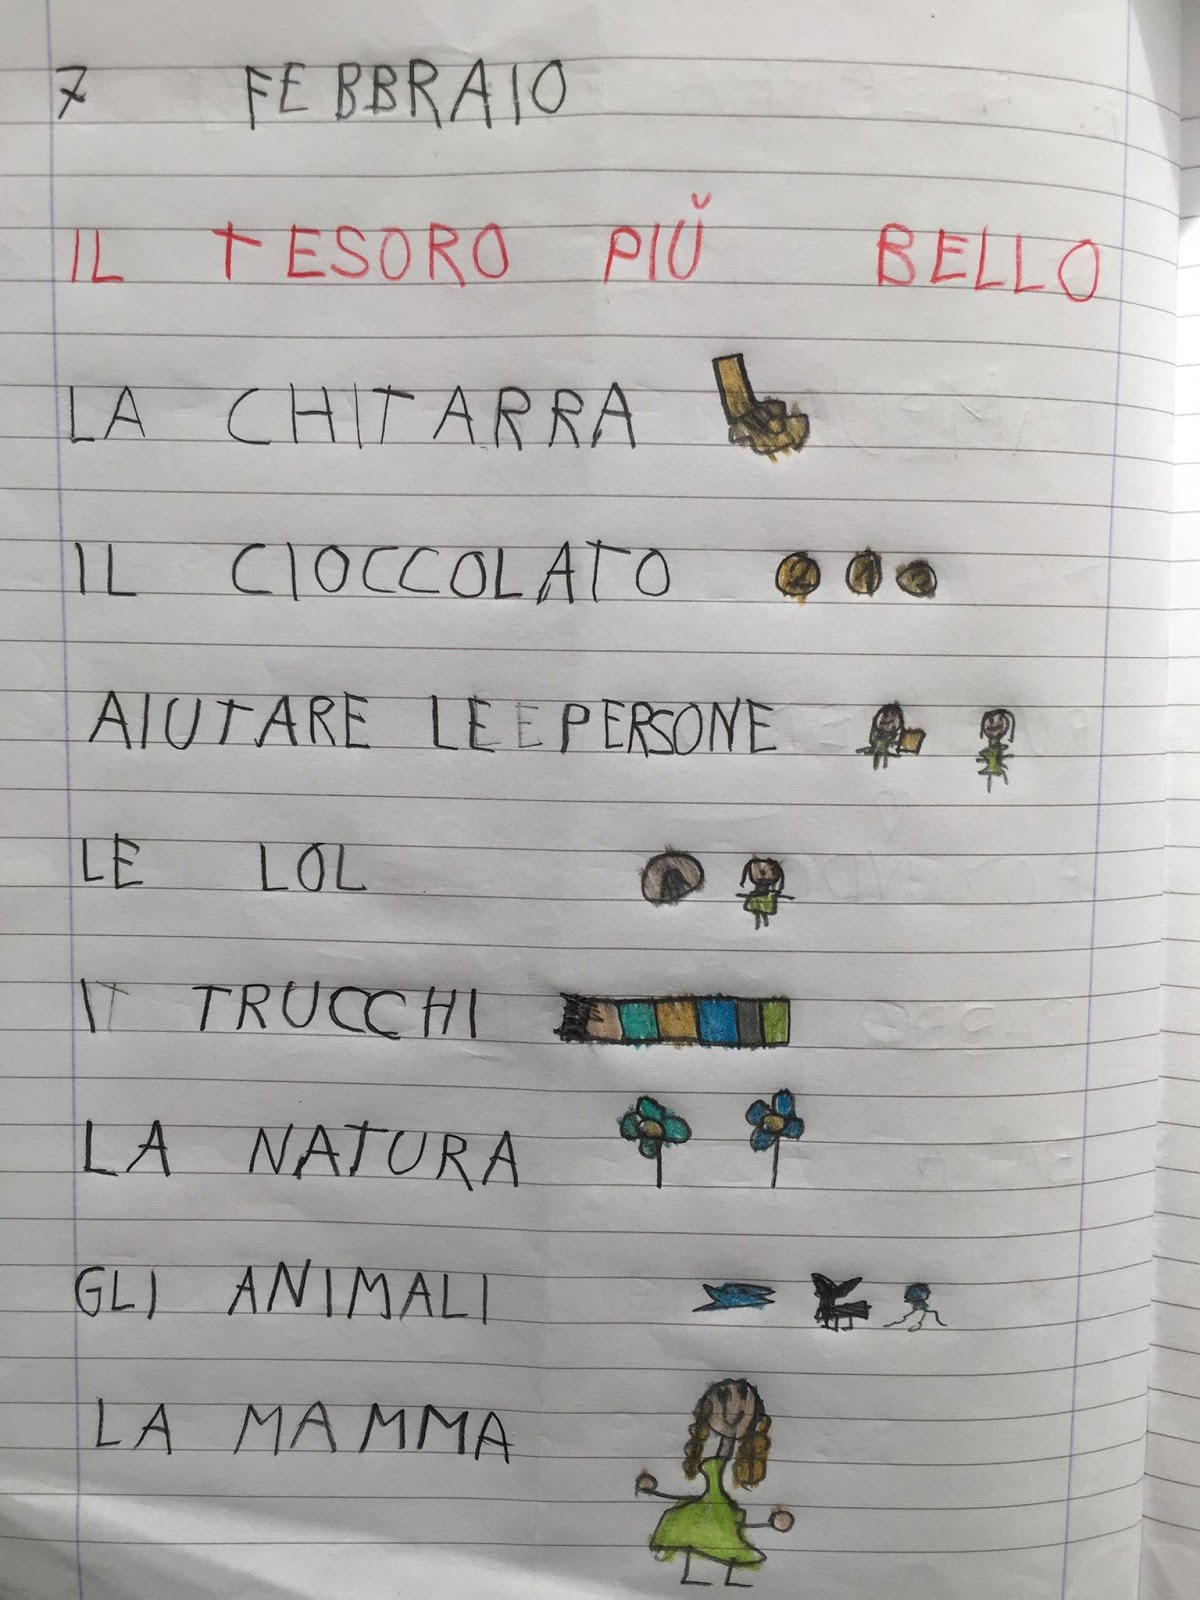 7 FEBBRAIO
IL TESORO PIÙ BELLO
LA CHITARRA
IL CIOCCOLATO
AIUTARE LE E PERSONE
LE LOL
IT TRUCCHI
LA NATURA
GLI ANIMALI
LA MAMMA